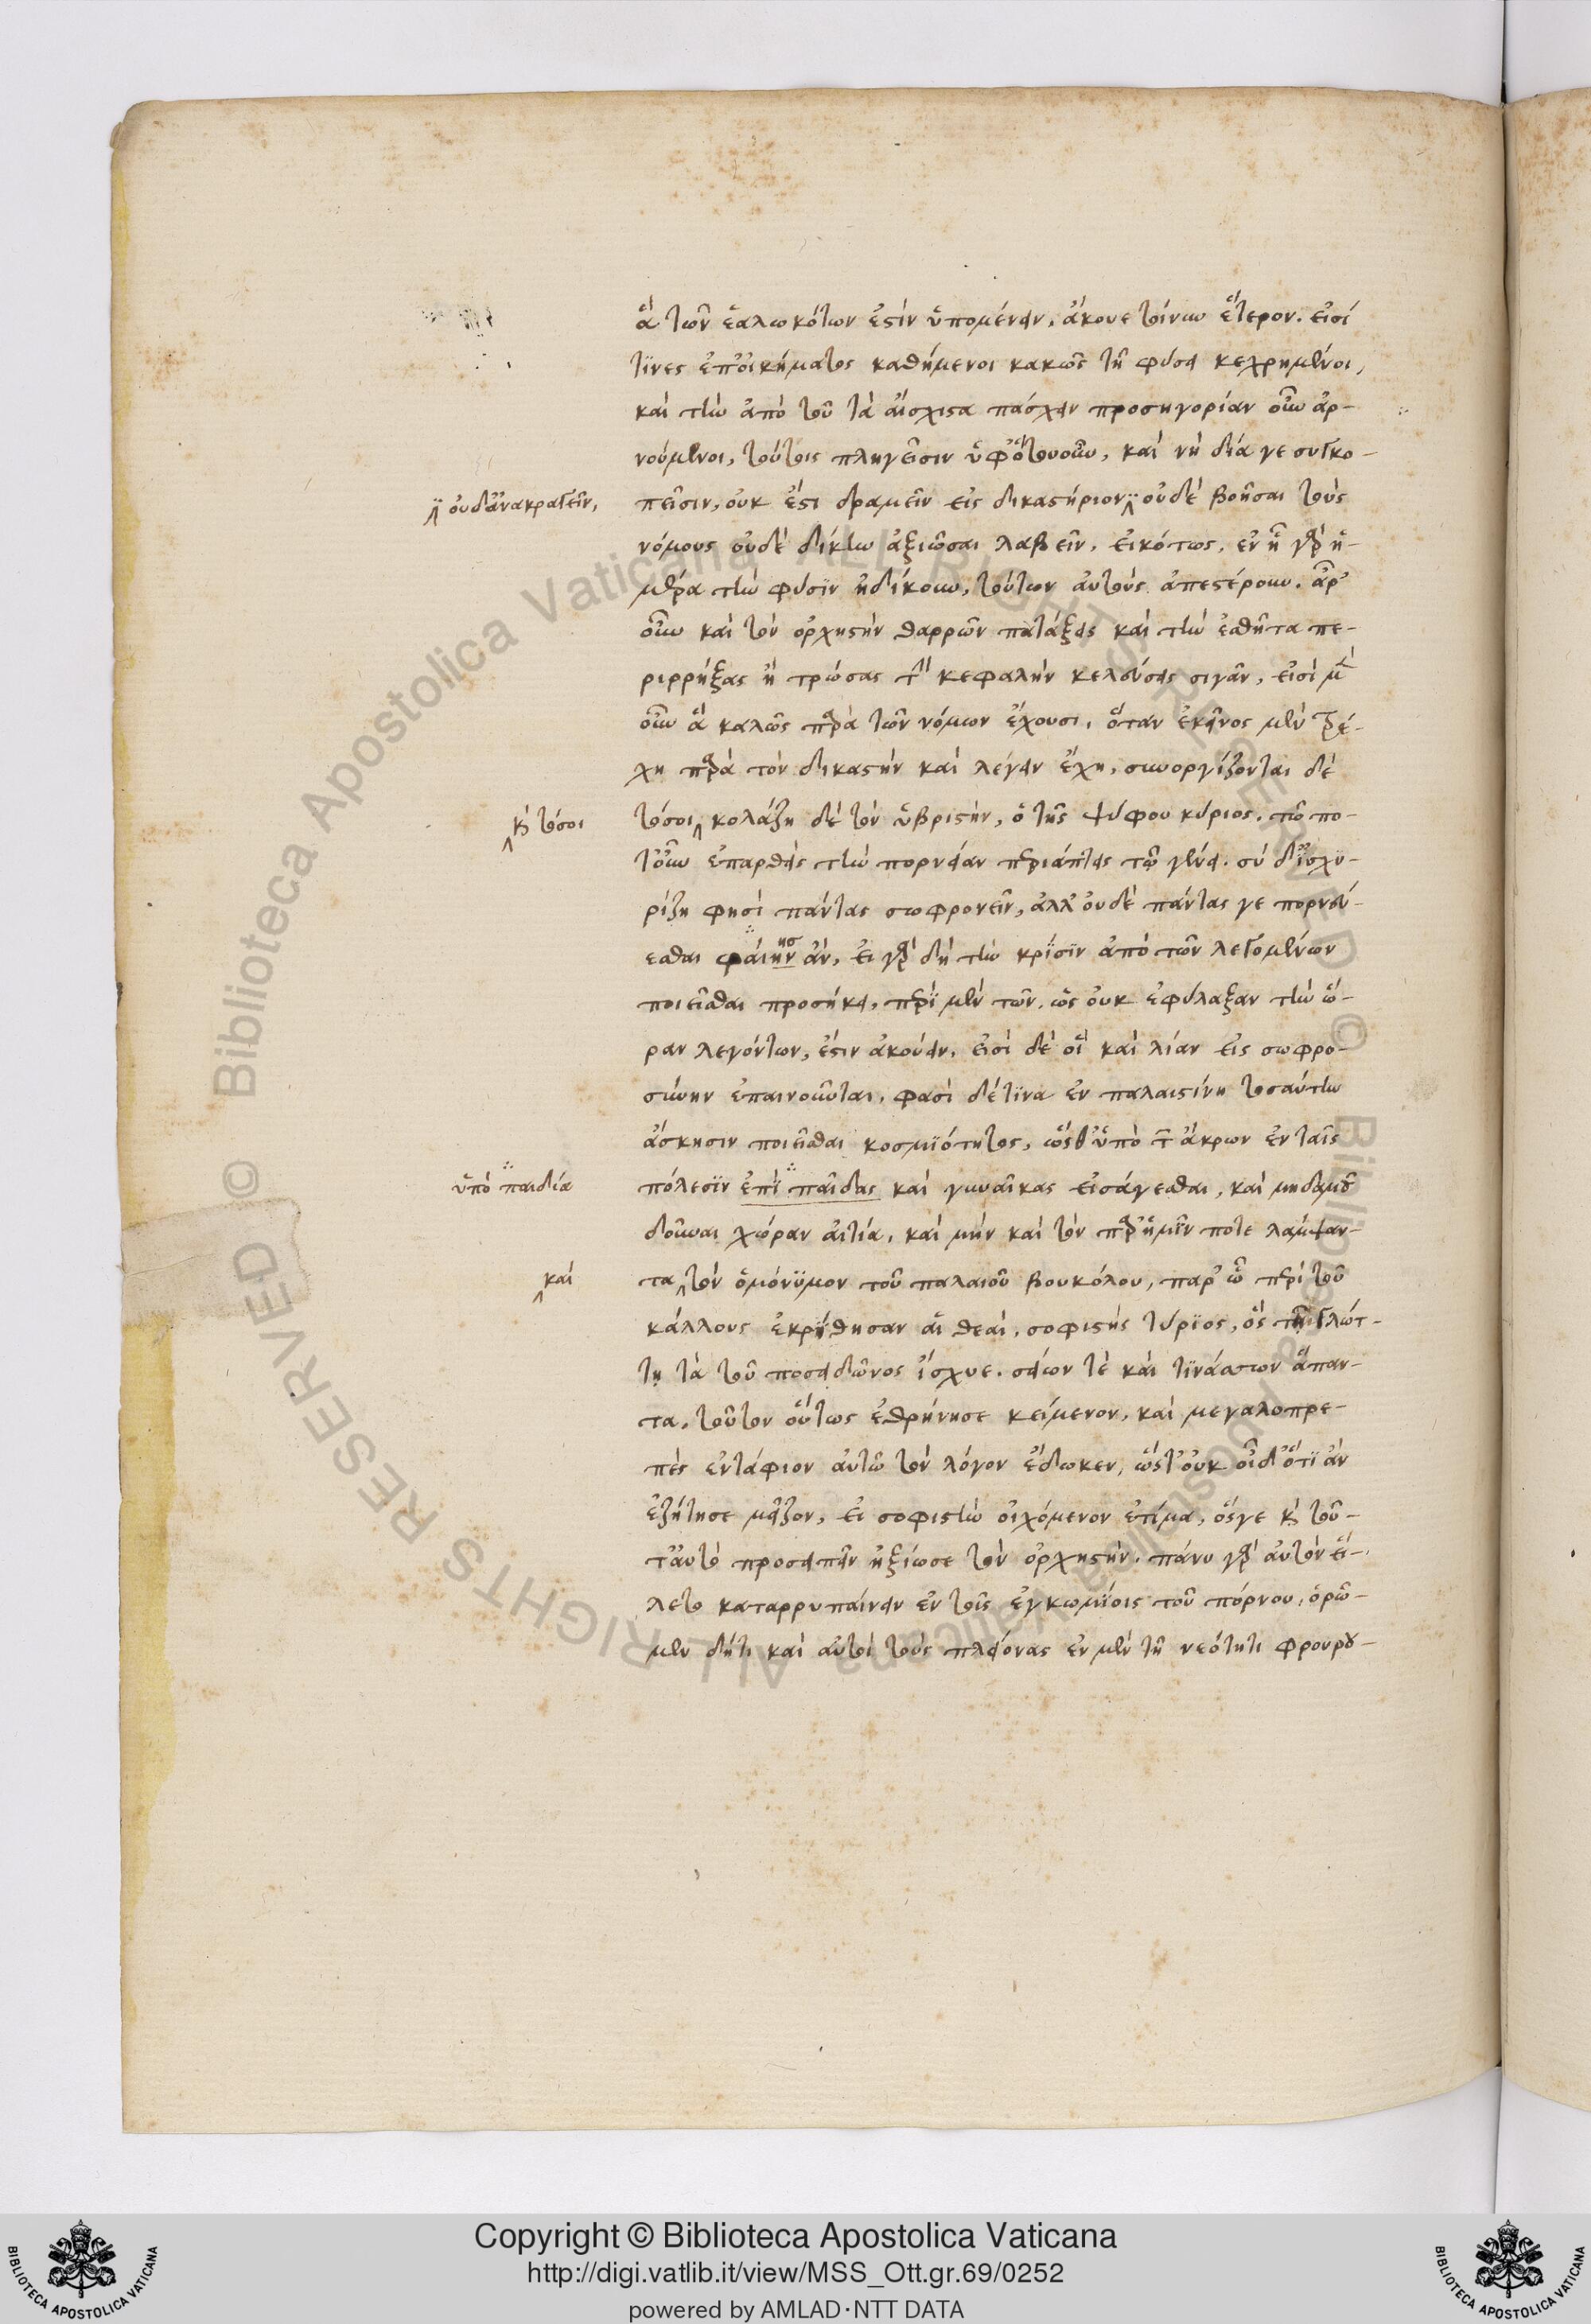 ἃ τῶν ἑαλωκότων ἐστὶν ὑπομένειν. ἄκουε τοίνυν ἕτερον. εἰσί
τινες ἐπ' οἰκήματος καθήμενοι κακῶς τῇ φύσει κεχρημένοι,
καὶ τὴν ἀπὸ τοῦ τὰ αἴσχιστα πάσχειν προσηγορίαν οὐκ ἀρ-
νούμενοι, τούτοις πληγεῖσιν ὑφ' ὁτουοῦν, καὶ νὴ δία γε συγκο-
πεῖσιν, οὐκ ἔστι δραμεῖν εἰς δικαστήριον οὐδὲ βοῆσαι τοὺς
οὐδ' ἀνακραγεῖν,
νόμους οὐδὲ δίκην ἀξιῶσαι λαβεῖν. εἰκότως. ἐν ᾗ γὰρ ἡ-
μέρα τὴν φύσιν ἠδίκουν, τούτων αὑτοὺς ἀπεστέρουν. ἆρ'
οὖν καὶ τὸν ὀρχηστὴν θαρρῶν πατάξεις καὶ τὴν ἐσθῆτα πε-
ριρρήξας ἢ τρώσας τὴν κεφαλὴν κελεύσεις σιγᾶν, εἰσὶ μὲν
οὖν ἃ καλῶς παρὰ τῶν νόμων ἔχουσι. ὅταν ἐκεῖνος μὲν τρέ-
χη παρὰ τὸν δικαστὴν καὶ λέγειν ἔχη, συνοργίζονται δὲ
τόσοι κολάζη δὲ τὸν ὑβριστὴν, ὁ τῆς ψήφου κύριος. πῶ πο-
καὶ τόσοι
τ' οὖν ἐπαρθεὶς τὴν πορνείαν περιάπτεις τῷ γένει. σὺ διϊσχυ-
ρίζη φησὶ πάντας σωφρονεῖν, ἀλλ' οὐδὲ πάντας γε πορνεύ-
εσθαι φαίην ἄν, εἰ γὰρ δὴ τὴν κρίσιν ἀπὸ τῶν λεγομένων
ποιεῖσθαι προσήκει, περὶ μὲν τῶν, ὡς οὐκ ἐφύλαξαν τὴν ὥ-
ραν λεγόντων, ἔστιν ἀκούειν. εἰσὶ δὲ οἳ καὶ λίαν εἰς σωφρο-
σύνην ἐπαινοῦνται. φασὶ δέ τινα ἐν παλαιστίνη τοσαύτην
ἄσκησιν ποιεῖσθαι κοσμιότητος, ὥσθ' ὑπὸ τῶν ἄκρων ἐν ταῖς
πόλεσιν ἐπὶ παῖδας καὶ γυναῖκας εἰσάγεσθαι, καὶ μηδαμοῦ
ὑπὸ παιδία
δοῦναι χώραν αἰτία. καὶ μὴν καὶ τὸν παρ' ἡμῖν ποτε λάμψαν-
τα τὸν ὁμώνυμον τοῦ παλαιοῦ βουκόλου, παρ' ᾧ περὶ τοῦ
καὶ
κάλλους ἐκρίθησαν αἱ θεαί. σοφιστὴς τύριος, ὃς τῇ γλώτ-
τῃ τὰ τοῦ ποσειδῶνος ἴσχυε. σείων τὲ καὶ τινάσσων ἅπαν-
τα, τοῦτον οὕτως ἐθρήνησε κείμενον, καὶ μεγαλοπρε-
πὲς ἐντάφιον αὐτῷ τὸν λόγον ἔδωκεν, ὥστ' οὐκ οἶδ' ὅτι ἂν
ἐζήτησε μεῖζον, εἰ σοφιστὴν οἰχόμενον ἐτίμα, ὅς γε καὶ τοῦ-
τ' αὐτὸ προσειπεῖν ἠξίωσε τὸν ὀρχηστήν. πάνυ γὰρ αὐτὸν εἵ-
λετο καταρρυπαίνειν ἐν τοῖς ἐγκωμίοις τοῦ πόρνου. ὁρῶ-
μεν δήτι καὶ αὐτοὶ τοὺς πλείονας ἐν μὲν τῇ νεότητι φρουρου-
Copyright © Biblioteca Apostolica Vaticana
http://digi.vatlib.it/view/MSS_Ott.gr.69/0252
powered by AMLAD·NTT DATA